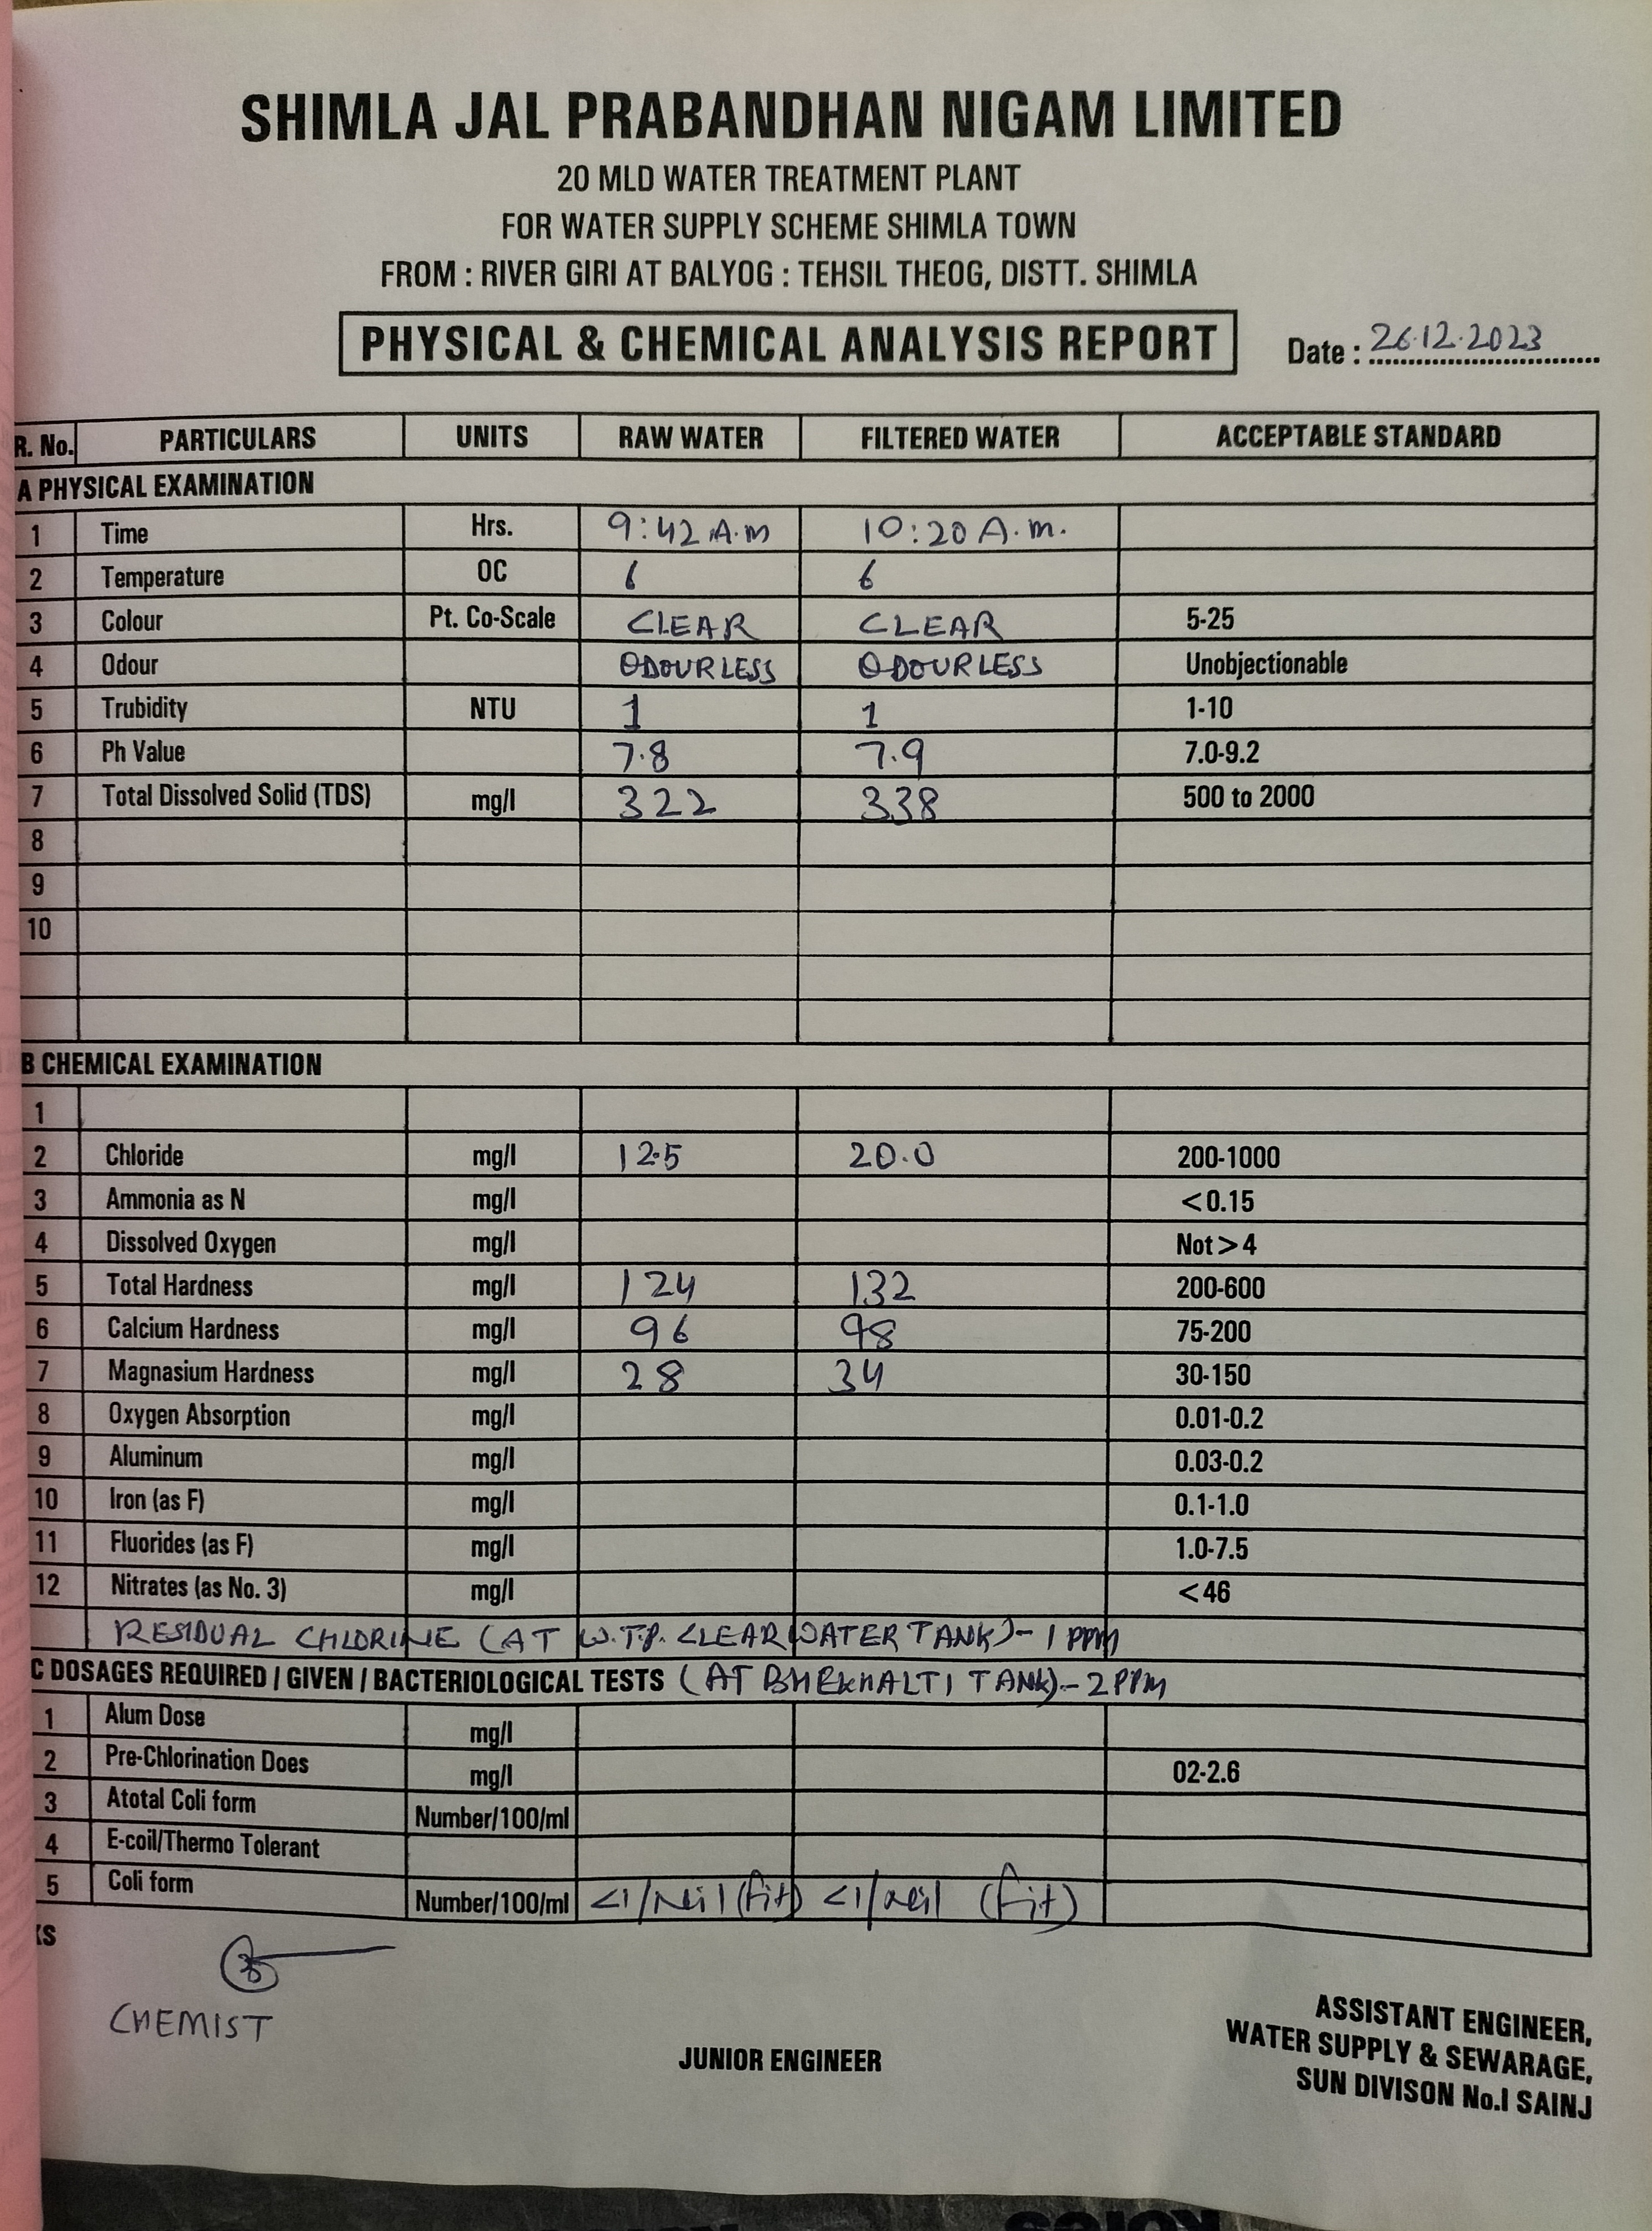 SHIMLA JAL PRABANDHAN NIGAM LIMITED
20 MLD WATER TREATMENT PLANT
FOR WATER SUPPLY SCHEME SHIMLA TOWN
FROM : RIVER GIRI AT BALYOG : TEHSIL THEOG, DISTT. SHIMLA
PHYSICAL & CHEMICAL ANALYSIS REPORT Date : 26.12.2023
R. No. PARTICULARS UNITS RAW WATER FILTERED WATER ACCEPTABLE STANDARD
A PHYSICAL EXAMINATION
1 Time Hrs. 9:42 A.m 10:20 A.m.
2 Temperature OC 6 6
3 Colour Pt. Co-Scale CLEAR CLEAR 5-25
4 Odour ODOURLESS ODOURLESS Unobjectionable
5 Trubidity NTU 1 1 1-10
6 Ph Value 7.8 7.9 7.0-9.2
7 Total Dissolved Solid (TDS) mg/l 322 338 500 to 2000
8
9
10
B CHEMICAL EXAMINATION
1
2 Chloride mg/l 12.5 20.0 200-1000
3 Ammonia as N mg/l <0.15
4 Dissolved Oxygen mg/l Not>4
5 Total Hardness mg/l 124 132 200-600
6 Calcium Hardness mg/l 96 98 75-200
7 Magnasium Hardness mg/l 28 34 30-150
8 Oxygen Absorption mg/l 0.01-0.2
9 Aluminum mg/l 0.03-0.2
10 Iron (as F) mg/l 0.1-1.0
11 Fluorides (as F) mg/l 1.0-7.5
12 Nitrates (as No. 3) mg/l <46
RESIDUAL CHLORINE (AT W.T.P. CLEAR WATER TANK)- 1 PPM
C DOSAGES REQUIRED / GIVEN / BACTERIOLOGICAL TESTS (AT BHEKHALTI TANK)- 2 PPM
1 Alum Dose mg/l
2 Pre-Chlorination Does mg/l 02-2.6
3 Atotal Coli form Number/100/ml
4 E-coil/Thermo Tolerant
5 Coli form Number/100/ml <1/Neil (fit) <1/neil (fit)
KS
CHEMIST
JUNIOR ENGINEER
ASSISTANT ENGINEER,
WATER SUPPLY & SEWARAGE,
SUN DIVISON No.I SAINJ